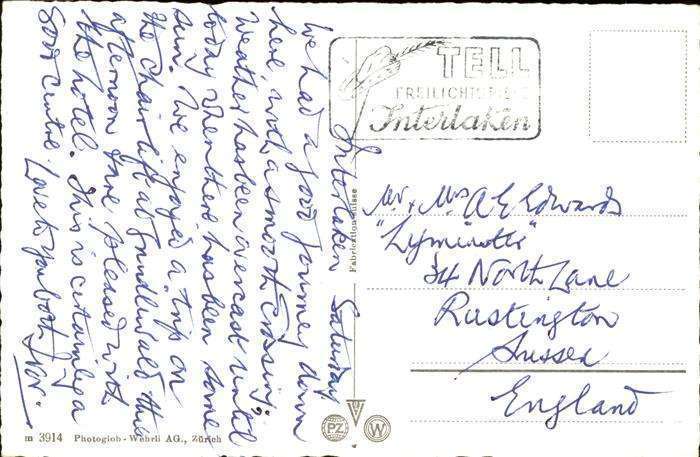 Interlaken Saturday
We had a good journey down
here with a smooth crossing;
Weather has been overcast until
today when there has been some
sun. We enjoyed a trip on
the chair lift at Grindelwald this
afternoon & are pleased with
the hotel. This is certainly a
good centre. Love to you both
TELL
FREILICHTSPIELE
Interlaken
Mr & Mrs A E Edwards
"Lyminster"
34 North Lane
Rustington
Sussex
England
Fabrication Suisse
m 3914 Photoglob-Wehrli AG., Zürich
PZ W